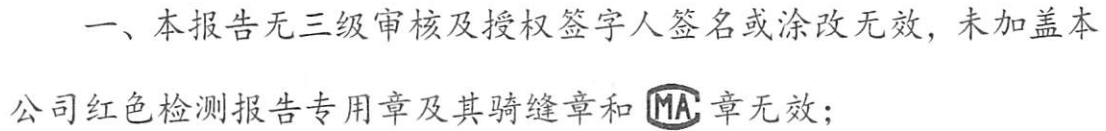 一、本报告无三级审核及授权签字人签名或涂改无效，未加盖本
公司红色检测报告专用章及其骑缝章和 MA 章无效；